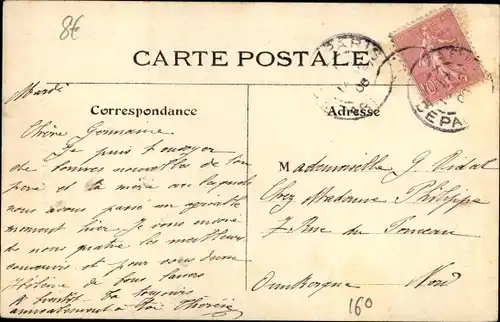 8€
CARTE POSTALE
PARIS
DEPART
Mardi
Correspondance
Adresse
Chère Germaine
Je puis t'envoyer
de bonnes nouvelles de ton
père et ta mère avec lesquels
nous avons passé un agréable
moment hier. Je vous envoie
de nous quatre les meilleurs
souvenirs et pour vous deux
de bons baisers
A bientôt Ta toujours
Mademoiselle G. Vidal
Chez Madame Philippe
7 Rue du Ponceau
Dunkerque Nord
160